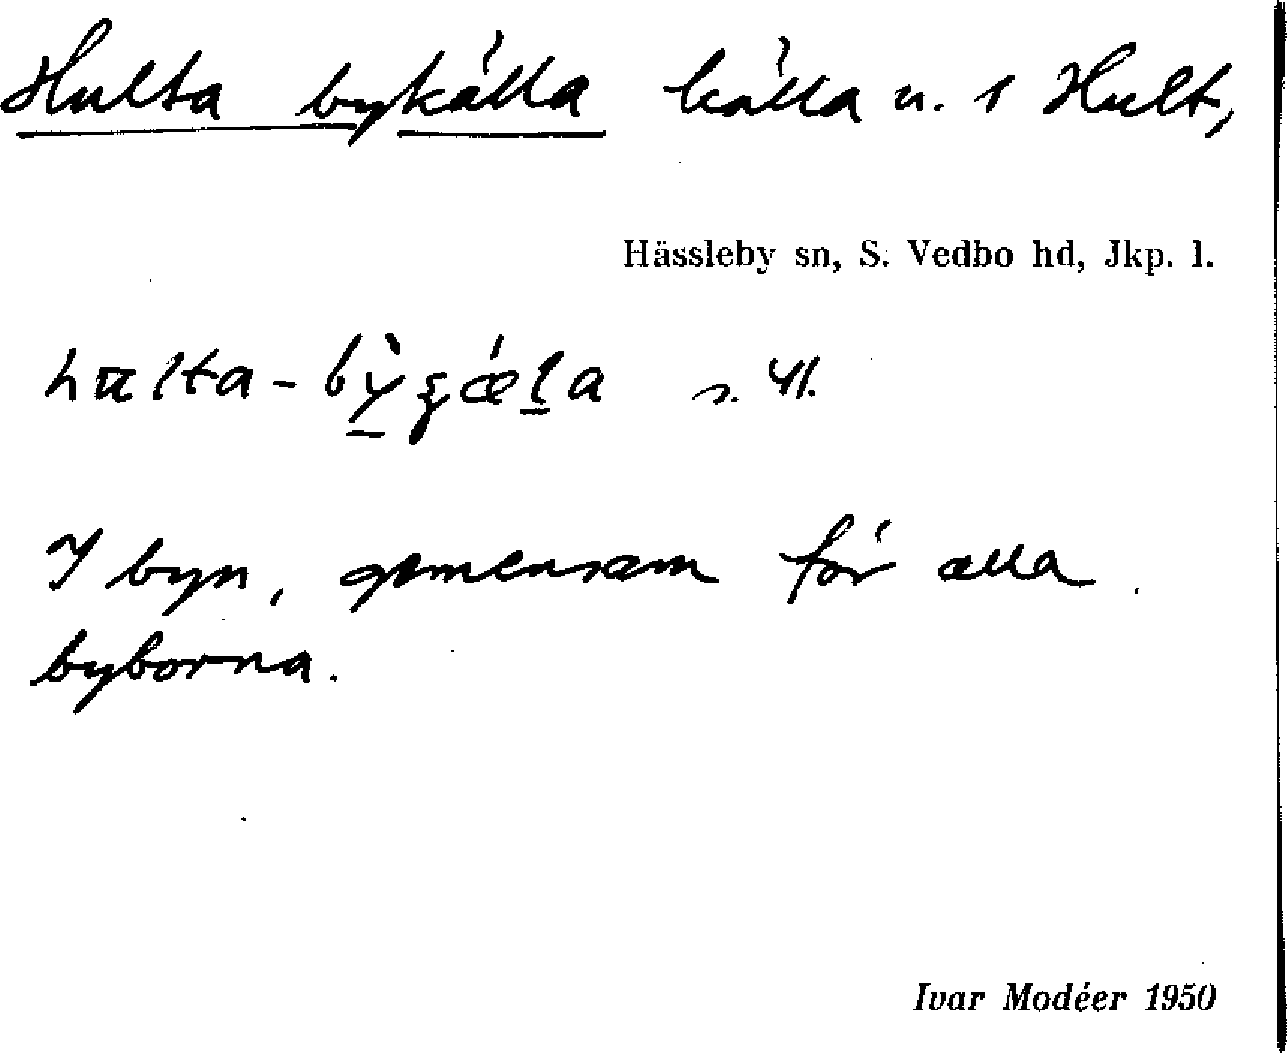 Hulta bykälla källa u. 1 Hult,
Hässleby sn, S. Vedbo hd, Jkp. l.
s. 41.
I byn, gemensam för alla
byborna.
Ivar Modéer 1950